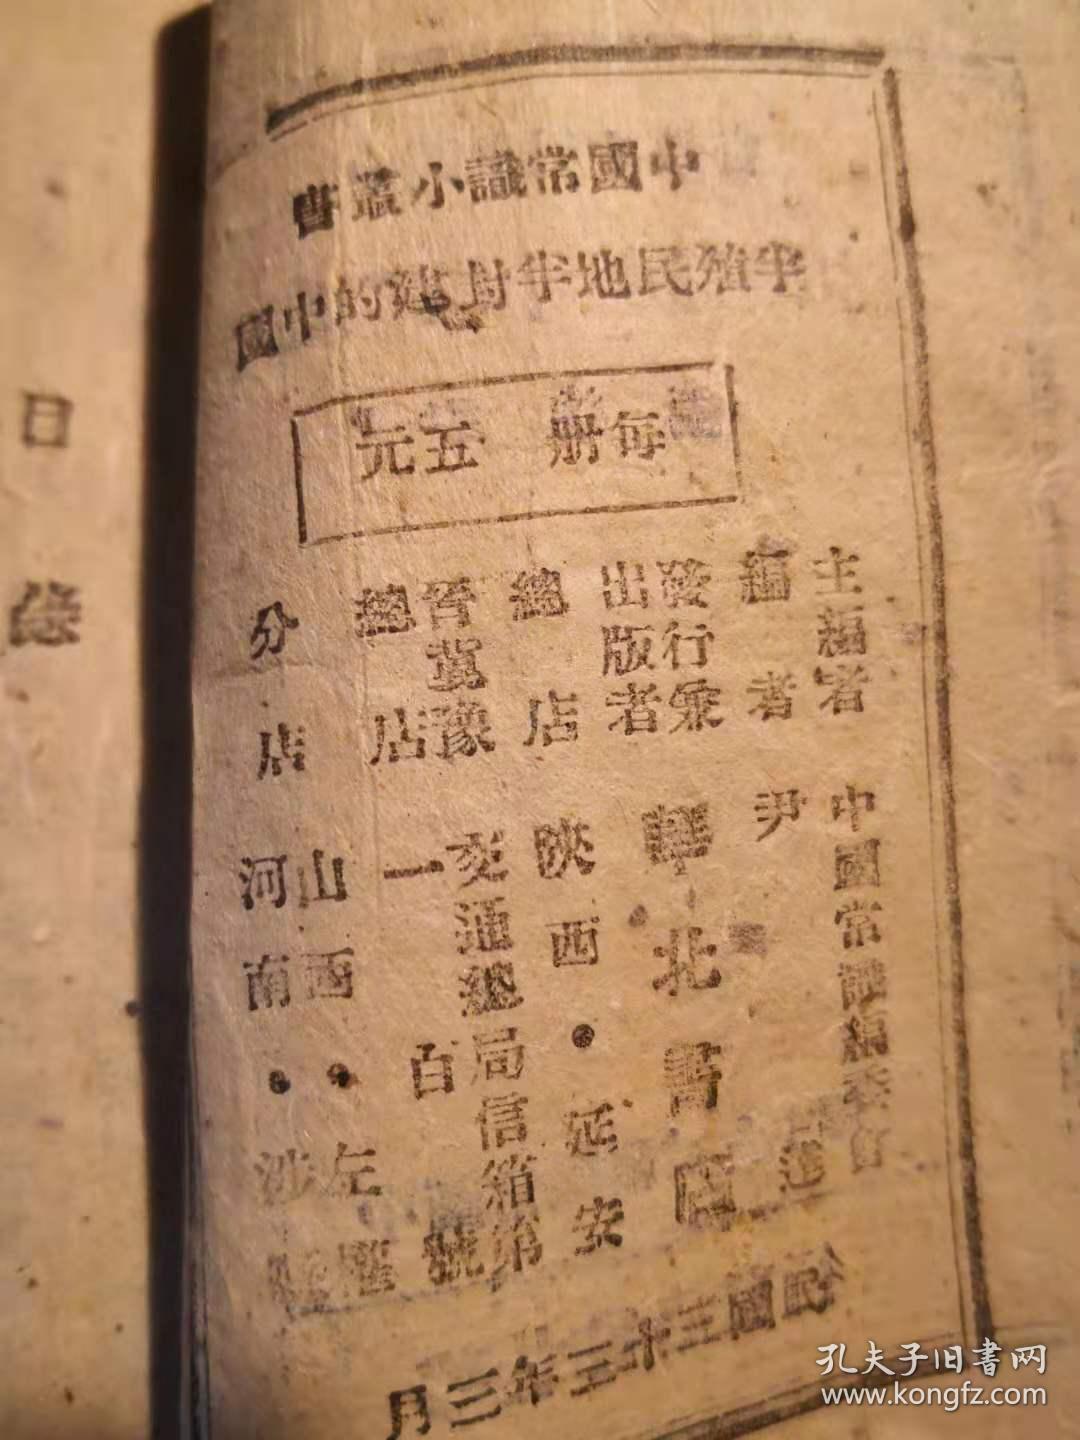 中國常識小叢書
半殖民地半封建的中國
每册 五元
主編者 中國常識編委會
編者 尹達
發行兼出版者 華北書店
總店 陝西•延安
晉冀豫總店 交通總局信箱第一百號
分店 山西•左權
河南•涉縣
民國三十三年三月
目錄
孔夫子旧書网
www.kongfz.com